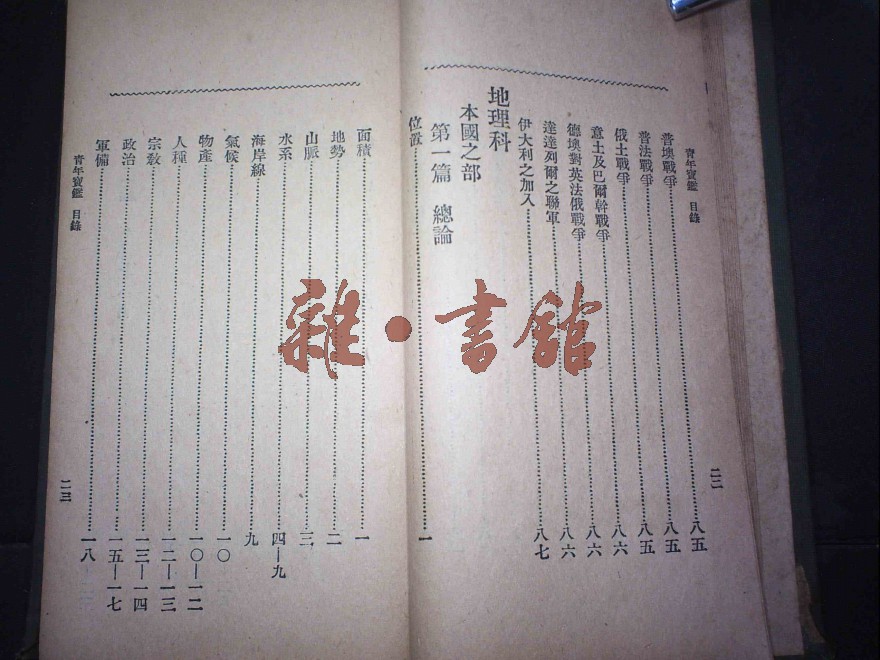 青年寶鑑 目錄 二二
普墺戰爭……八五
普法戰爭……八五
俄土戰爭……八五
意土及巴爾幹戰爭……八六
德墺對英法俄戰爭……八六
達達列爾之聯軍……八六
伊大利之加入……八七
地理科
本國之部
第一篇 總論
位置……一
面積……一
地勢……二
山脈……三
水系……四—九
海岸線……九
氣候……一〇
物產……一〇—一二
人種……一二—一三
宗教……一三—一四
政治……一五—一七
軍備……一八
青年寶鑑 目錄 二三
雜·書館